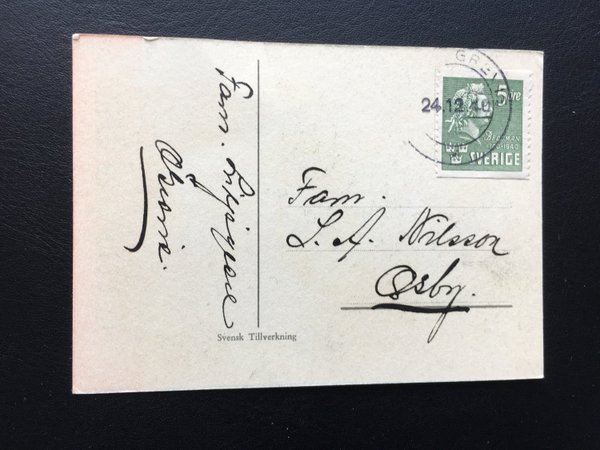 Fam.
GRE
24.12.40
5 öre
BELLMAN
1740-1940
SVERIGE
Fam.
L. A. Nilsson
Osby.
Svensk Tillverkning